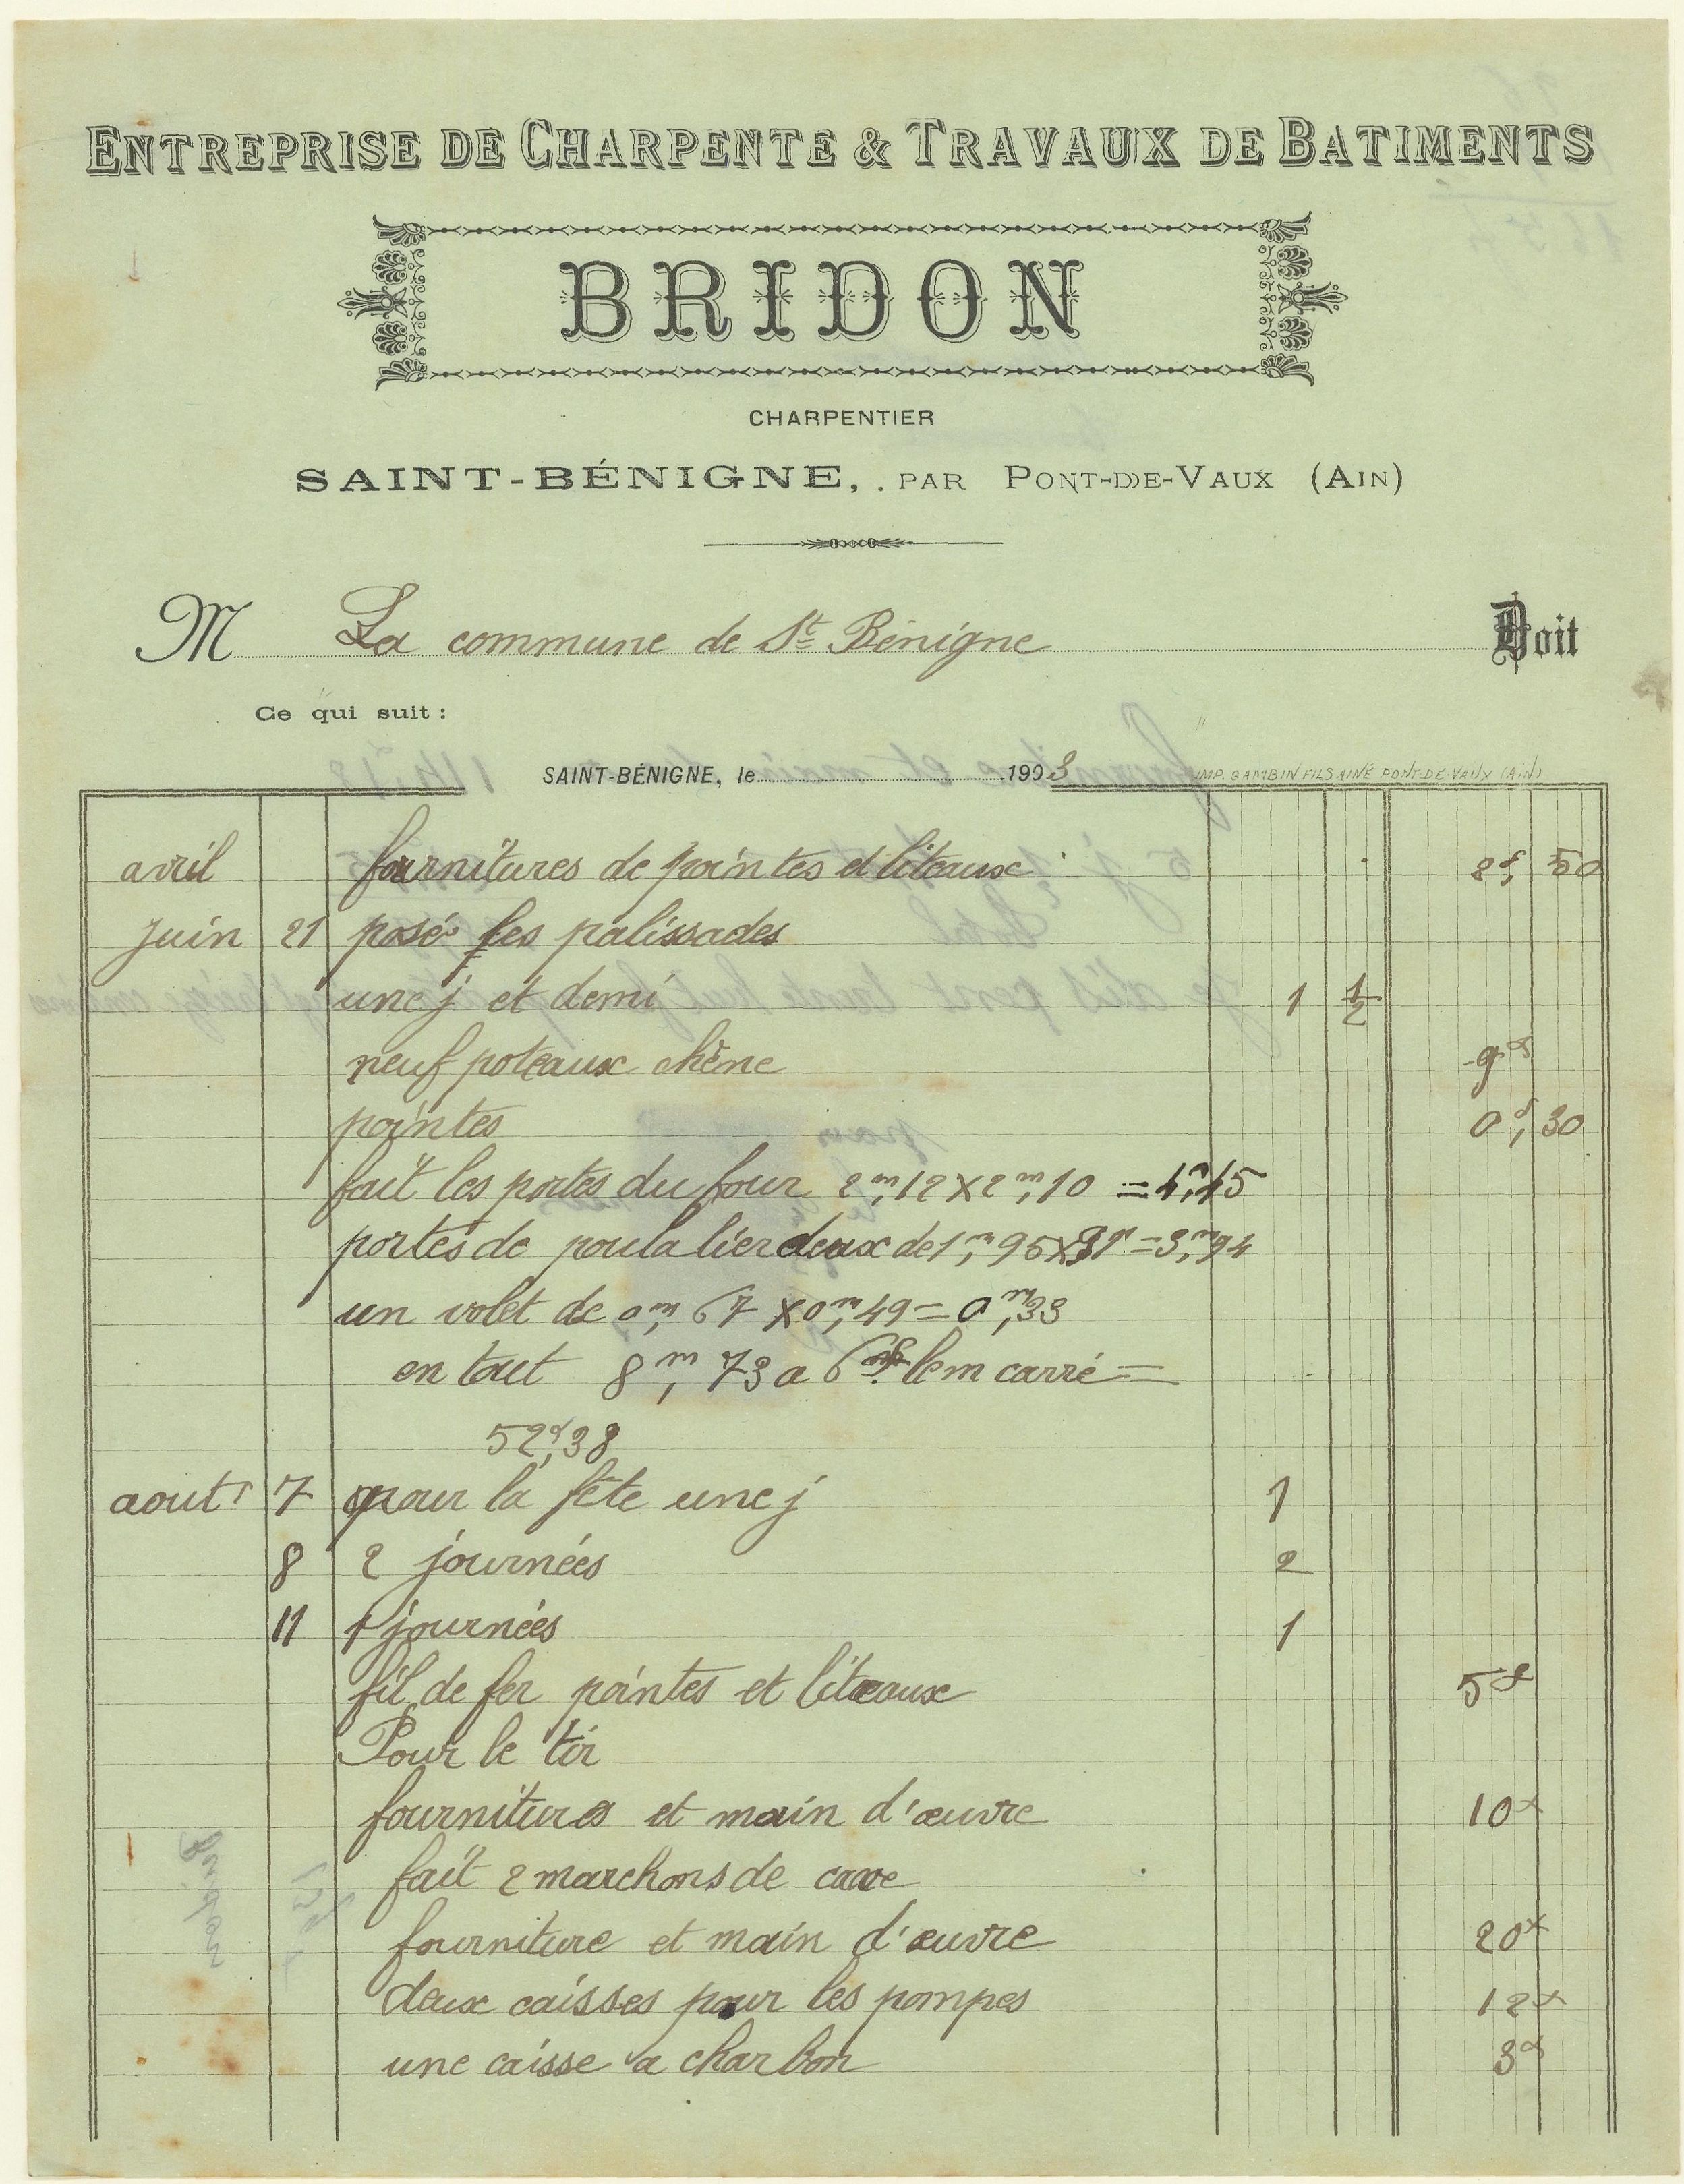 ENTREPRISE DE CHARPENTE & TRAVAUX DE BATIMENTS
BRIDON
CHARPENTIER
SAINT-BÉNIGNE, . PAR PONT-DE-VAUX (AIN)
M La commune de St Bénigne Doit
Ce qui suit :
SAINT-BÉNIGNE, le 1903 IMP. SAMBIN FILS AINÉ PONT-DE-VAUX (AIN)
avril fournitures de pointes et liteaux 2f, 50
juin 21 posé les palissades
une j et demi 1 1/2
neuf poteaux chêne 9f
pointes 0f, 30
fait les portes du four 2m,12 X 2m,10 = 4,m45
portes de poulalier deux de 1,m95 X = 3,m94
un volet de 0m, 67 X 0m,49 = 0m,33
en tout 8m, 73 a 6f le m carré =
52f,38
aout 7 pour la fête une j 1
8 2 journées 2
11 1 journées 1
fil de fer pointes et liteaux 5f
Pour le tir
fournitures et main d'œuvre 10f
fait 2 marchons de cave
fourniture et main d'œuvre 20f
deux caisses pour les pompes 12f
une caisse a charbon 3f